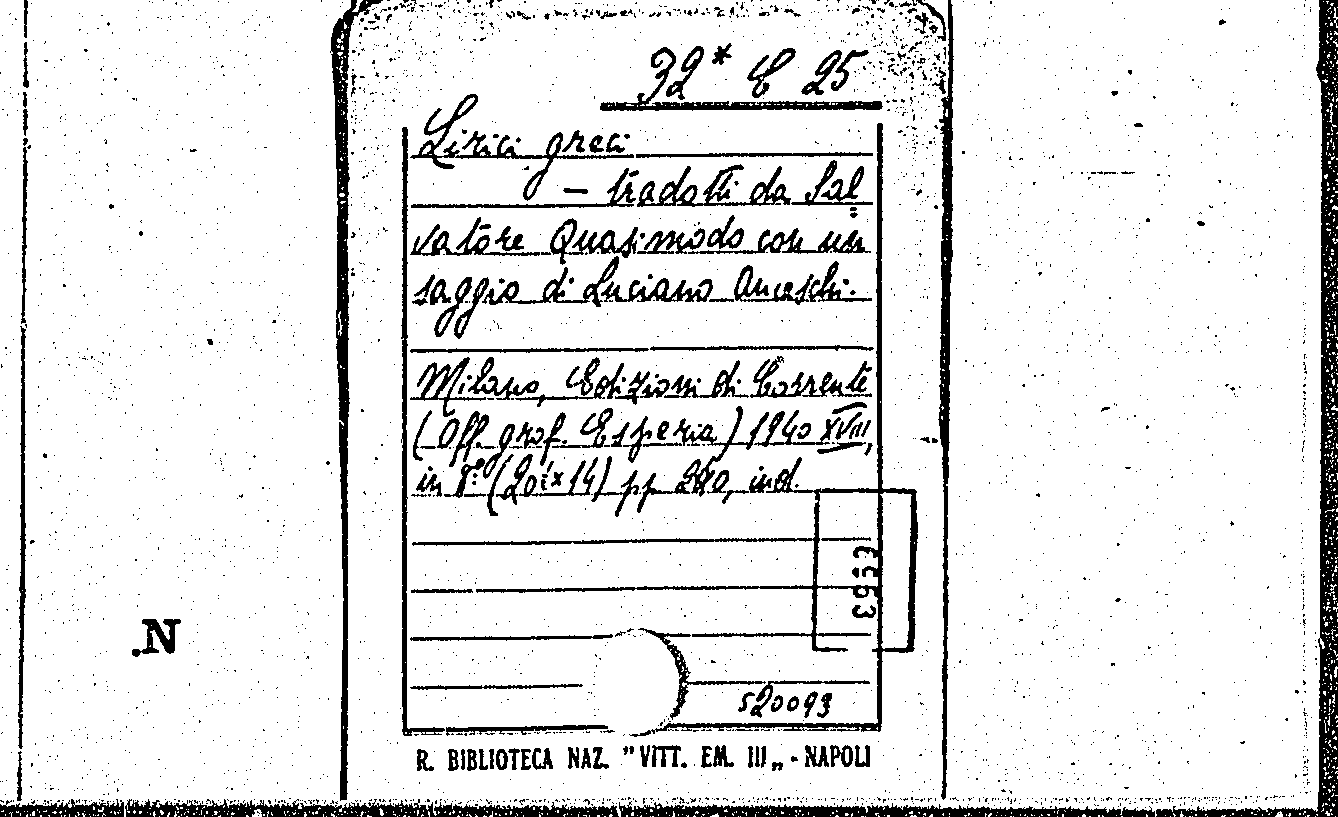 32* C 25
Lirici greci
— tradotti da Sal
vatore Quasimodo con un
saggio di Luciano Anceschi.
Milano, Edizioni di Corrente
(Off. graf. Esperia) 1940 XVIII,
in 8º (20×14) pp 240, ind.
520093
R. BIBLIOTECA NAZ. "VITT. EM. III„ - NAPOLI
.N